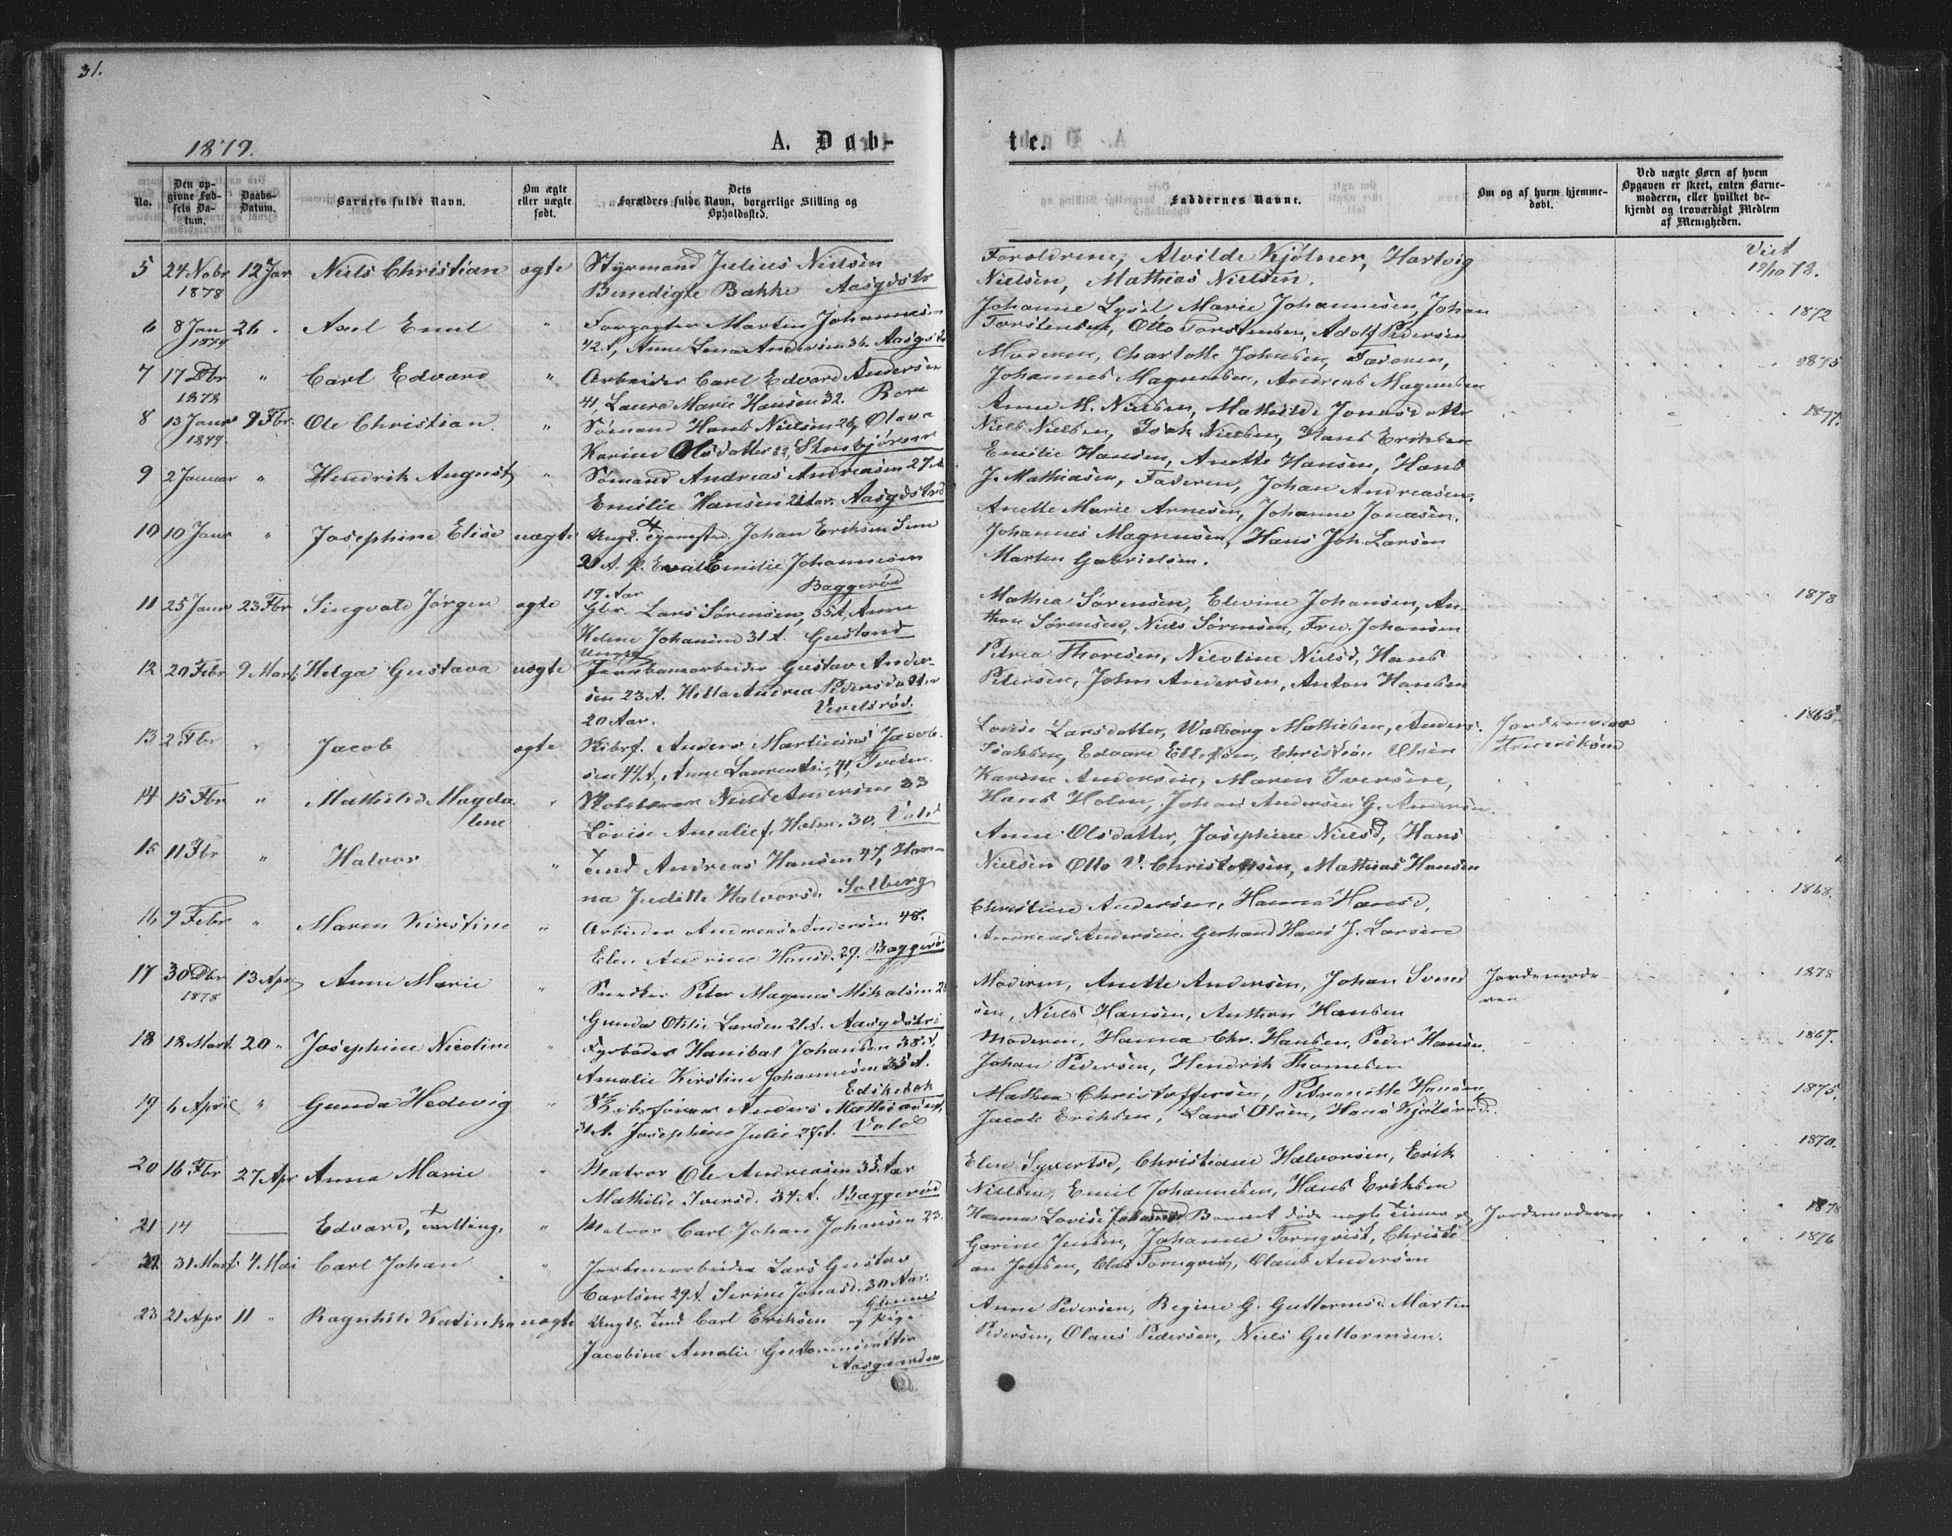 31.
1879.
A. Døb-
No.
Den op-
givne Fød-
sels Da-
tum.
Daabs-
Datum.
Barnets fulde Navn.
Om ægte
eller uægte
født.
Dets
Forældres fulde Navn, borgerlige Stilling og
Opholdssted.
5 24 Nobr 12 Jar Niels Christian ægte Styrmand Julius Nielsen
1878 Benedigte Bakke Aasgdstr
6 8 Jan 26 Axel Emil " Forgagter Martin Johannesen
1879 42 A, Anne Lena Andersen 36. Aasgstr
7 17 Dbr " Carl Edvard " Arbeider Carl Edvard Andersen
1878 41, Laura Marie Hansen 32. Rore
8 13 Janr 9 Fbr. Ole Christian. " Sømand Hans Nielsen 26, Olava
1879 Karine Olsdatter 22, Stensbjörnrr
9 2 Januar " Hendrik August " Sømand Andreas Andreasen 27 A
Emilie Hansen 21 Aar. Aasgdstrd
10 10 Janr " Josephine Elise uægte Ungk. Tjenestkd. Johan Eriksen Sem
21 A. P. Emilie Johannesen
19 Aar Baggerød
11 25 Janr 23 Fbr Singvald Jørgen ægte Gbr. Lars Sørensen, 35 A, Anne
Helene Johansen 31 A. Gusland
Ungk
12 20 Febr 9 Marts Helga Gustava uægte Jernbanearbeider Gustav Ander-
sen 23 A. Hella Andrea Pedersdatter
20 Aar. Vivelsrød.
13 2 Fbr " Jacob ægte Skibsf. Anders Martinius Jacob-
sen 44 A, Anne Laurentsie, 41, Tveten.
14 15 Fbr " Mathilde Magda- " Skolelærer Niels Andersen 33
lene Lovise Amalie f. Holm. 30, Vold
15 11 Fbr " Halvor " Tmd Andreas Hansen 47, Han-
na Juditte Halvorsd. Solberg
16 9 Febr " Maren Kirstine " Arbeider Andreas Andersen 48.
Elen Andrine Hansd. 29. Baggerø
17 30 Dbr 13 Apr Anne Marie " Snedker Peter Magenes Mikalsen 2
1878 Gunda Otilie Larsen 21 A. Aasgdstr
18 18 Mart 20 " Josephine Nicoline " Fyrbøder Hanibal Johansen 38 A,
Amalie Kirstine Johannesen 35 A.
Edskebak
19 6 April " Gunda Hedevig " Skibsfører Anders Mathiasen,
Josephine Julie 27 A. Vold
20 16 Fbr 27 Apr Anna Marie " Matros Ole Andreasen 35 Aar
Mathilde Iversd. 34 A. Baggerød
21 14 Edvard, Tvilling, " Matros Carl Johan Johansen 23.
22 31 Mart 4 Mai Carl Johan " Jernbanearbeider Lars Gustav
Carlsen 29 A. Serine Jonasd. 30 Aar.
Glenne
23 21 Apr 11 " Ragnhild Katinka uægte Ungk. Tmd Carl Eriksen og pige
Jacobine Amalie Guttormsdatter
Aasgaarden
te.
Faddernes Navne.
Om og af hvem hjemme-
døbt.
Ved uægte Børn af hvem
Opgaven er skeet, enten Barne-
moderen, eller hvilket be-
kjendt og troværdigt Medlem
af Menigheden.
Foreldrene, Alvilde Kjølner, Hartvig Viet
Nielsen, Mathias Nielsen. 19/10 78.
Johanne Lysel Marie Johannesen, Johan 1872
Torstensen, Otto Torstensen, Adolf Pedersen
Moderen, Charlotte Johnsen, Faderen, 1875
Johannes Magnussen, Andreas Magnussen
Anne M. Nielsen, Mathilde Jonasdatter 1877.
Niels Nielsen, Isak Nielsen, Hans Eriksen
Emilie Hansen, Anette Hansen, Hans
J. Mathiasen, Faderen, Johan Andreasen.
Anette Marie Arnesen, Johanne Jonasen.
Johannes Magnussen, Hans Joh. Larsen
Marten Gabrielsen.
Mathea Sørensen, Elevine Johansen, An- 1878
thon Sørensen, Niels Sørensen, Fred. Johansen
Petrea Thoresen, Nicoline Nielsd, Hans
Petersen, John Andersen, Anton Hansen
Lovise Larsdatter, Walborg Mathisen, Anders. Jordemoder 1865
Isaksen, Edvard Ellefsen, Christian Olsen Frederiksen
Karine Andersen, Maren Iversen,
Hans Holm, Johan Andersen G. Andersen.
Anne Olsdatter, Josephine Nielsd, Hans
Nielsen Otto V. Christensen, Mathias Hansen
Christine Andersen, Hanna Hansd, 1868.
Andreas Andersen, Gerhard Hans J. Larsen
Moderen, Anette Andersen, Johan Svend- Jordemode- 1878
sen, Niels Hansen, Anthon Hansen ren
Moderen, Hanna Chr. Hansen, Peder Hansen. 1867.
Johan Pedersen, Hendrik Thomesen
Mathea Christoffersen, Petronille Hansen, 1875.
Jacob Eriksen, Lars Olsen, Hans Kjølsrød.
Elen Syvertsd, Christiane Halvorsen, Erik 1870.
Nielsen, Emil Johannesen, Hans Eriksen
Hanna Lovise Barnet døde nogle Timer Jordemoderen 1878
Gorine Jensen, Johanne Tornqvist, Christi- 1876
an Jensen, Clas Tornqvist, Olaus Andersen
Anne Pedersen, Regine G. Guttormsd. Martin
Pedersen, Olaus Pedersen, Niels Guttormsen.